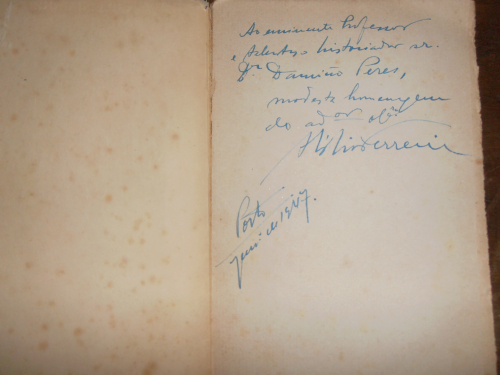 Ao eminente Professor
e talentoso historiador sr.
Dr. Damião Peres,
modesta homenagem
do ad.or ob.o
Ferreira
Porto
de 1947.